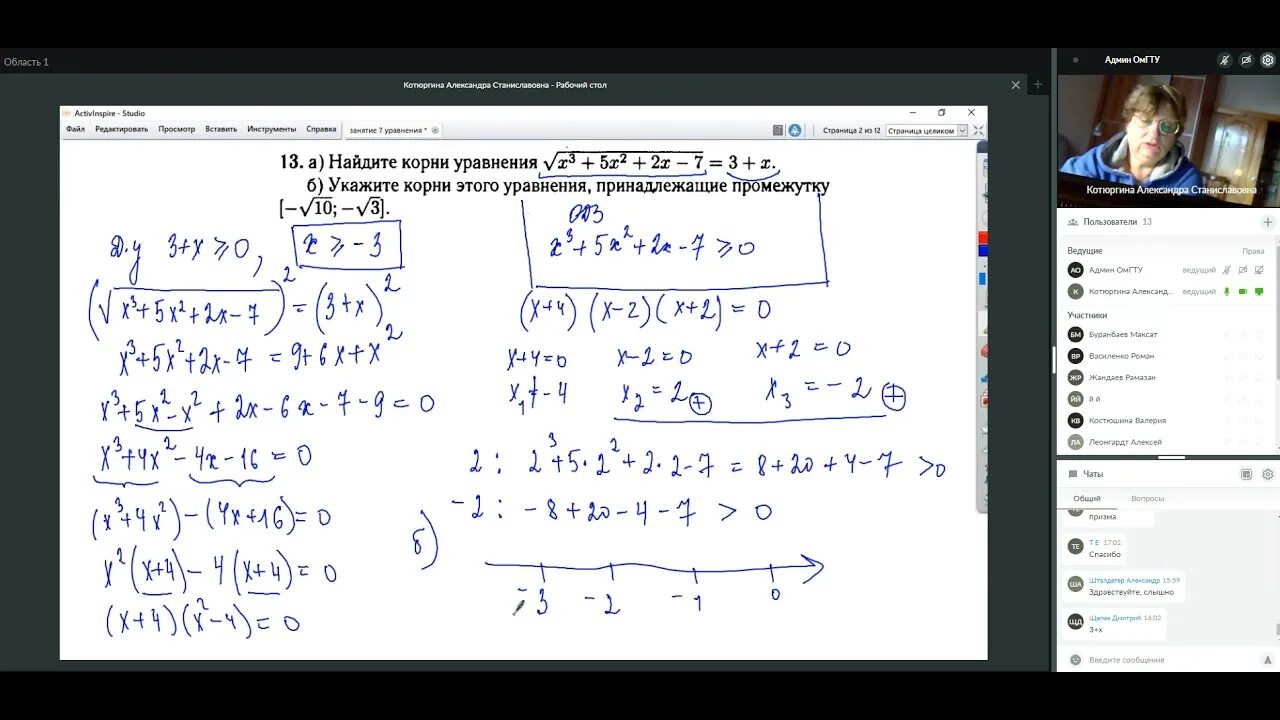 Область 1
Котюргина Александра Станиславовна - Рабочий стол
ActivInspire - Studio
Файл Редактировать Просмотр Вставить Инструменты Справка занятие 7 уравнения * Страница 2 из 12 Страница целиком
13. а) Найдите корни уравнения √(x³ + 5x² + 2x − 7) = 3 + x.
б) Укажите корни этого уравнения, принадлежащие промежутку
[−√10; −√3].
Д.у 3+x ≥ 0, x ≥ -3
(√(x³+5x²+2x-7))² = (3+x)²
x³+5x²+2x-7 = 9+6x+x²
x³+5x²-x²+2x-6x-7-9=0
x³+4x²-4x-16=0
(x³+4x²)-(4x+16)=0
x²(x+4)-4(x+4)=0
(x+4)(x²-4)=0
ОДЗ
x³+5x²+2x-7 ≥ 0
(x+4)(x-2)(x+2)=0
x+4=0 x-2=0 x+2=0
x₁=-4 x₂=2 + x₃=-2 +
2: 2³+5·2²+2·2-7 = 8+20+4-7 >0
-2: -8+20-4-7 > 0
б)
-3 -2 -1 0
Админ ОмГТУ
Котюргина Александра Станиславовна
Пользователи 13
Ведущие Права
АО Админ ОмГТУ ведущий
К Котюргина Александ... ведущий
Участники
БМ Буранбаев Максат
ВР Василенко Роман
ЖР Жандаев Рамазан
ЙЙ й й
КВ Костюшина Валерия
ЛА Леонгардт Алексей
Чаты
Общий Вопросы
призма
ТЕ Т Е 17:02
Спасибо
ША Шталдегер Александр 15:59
Здравствуйте, слышно
ЩД Щепак Дмитрий 16:02
3+х
Введите сообщение